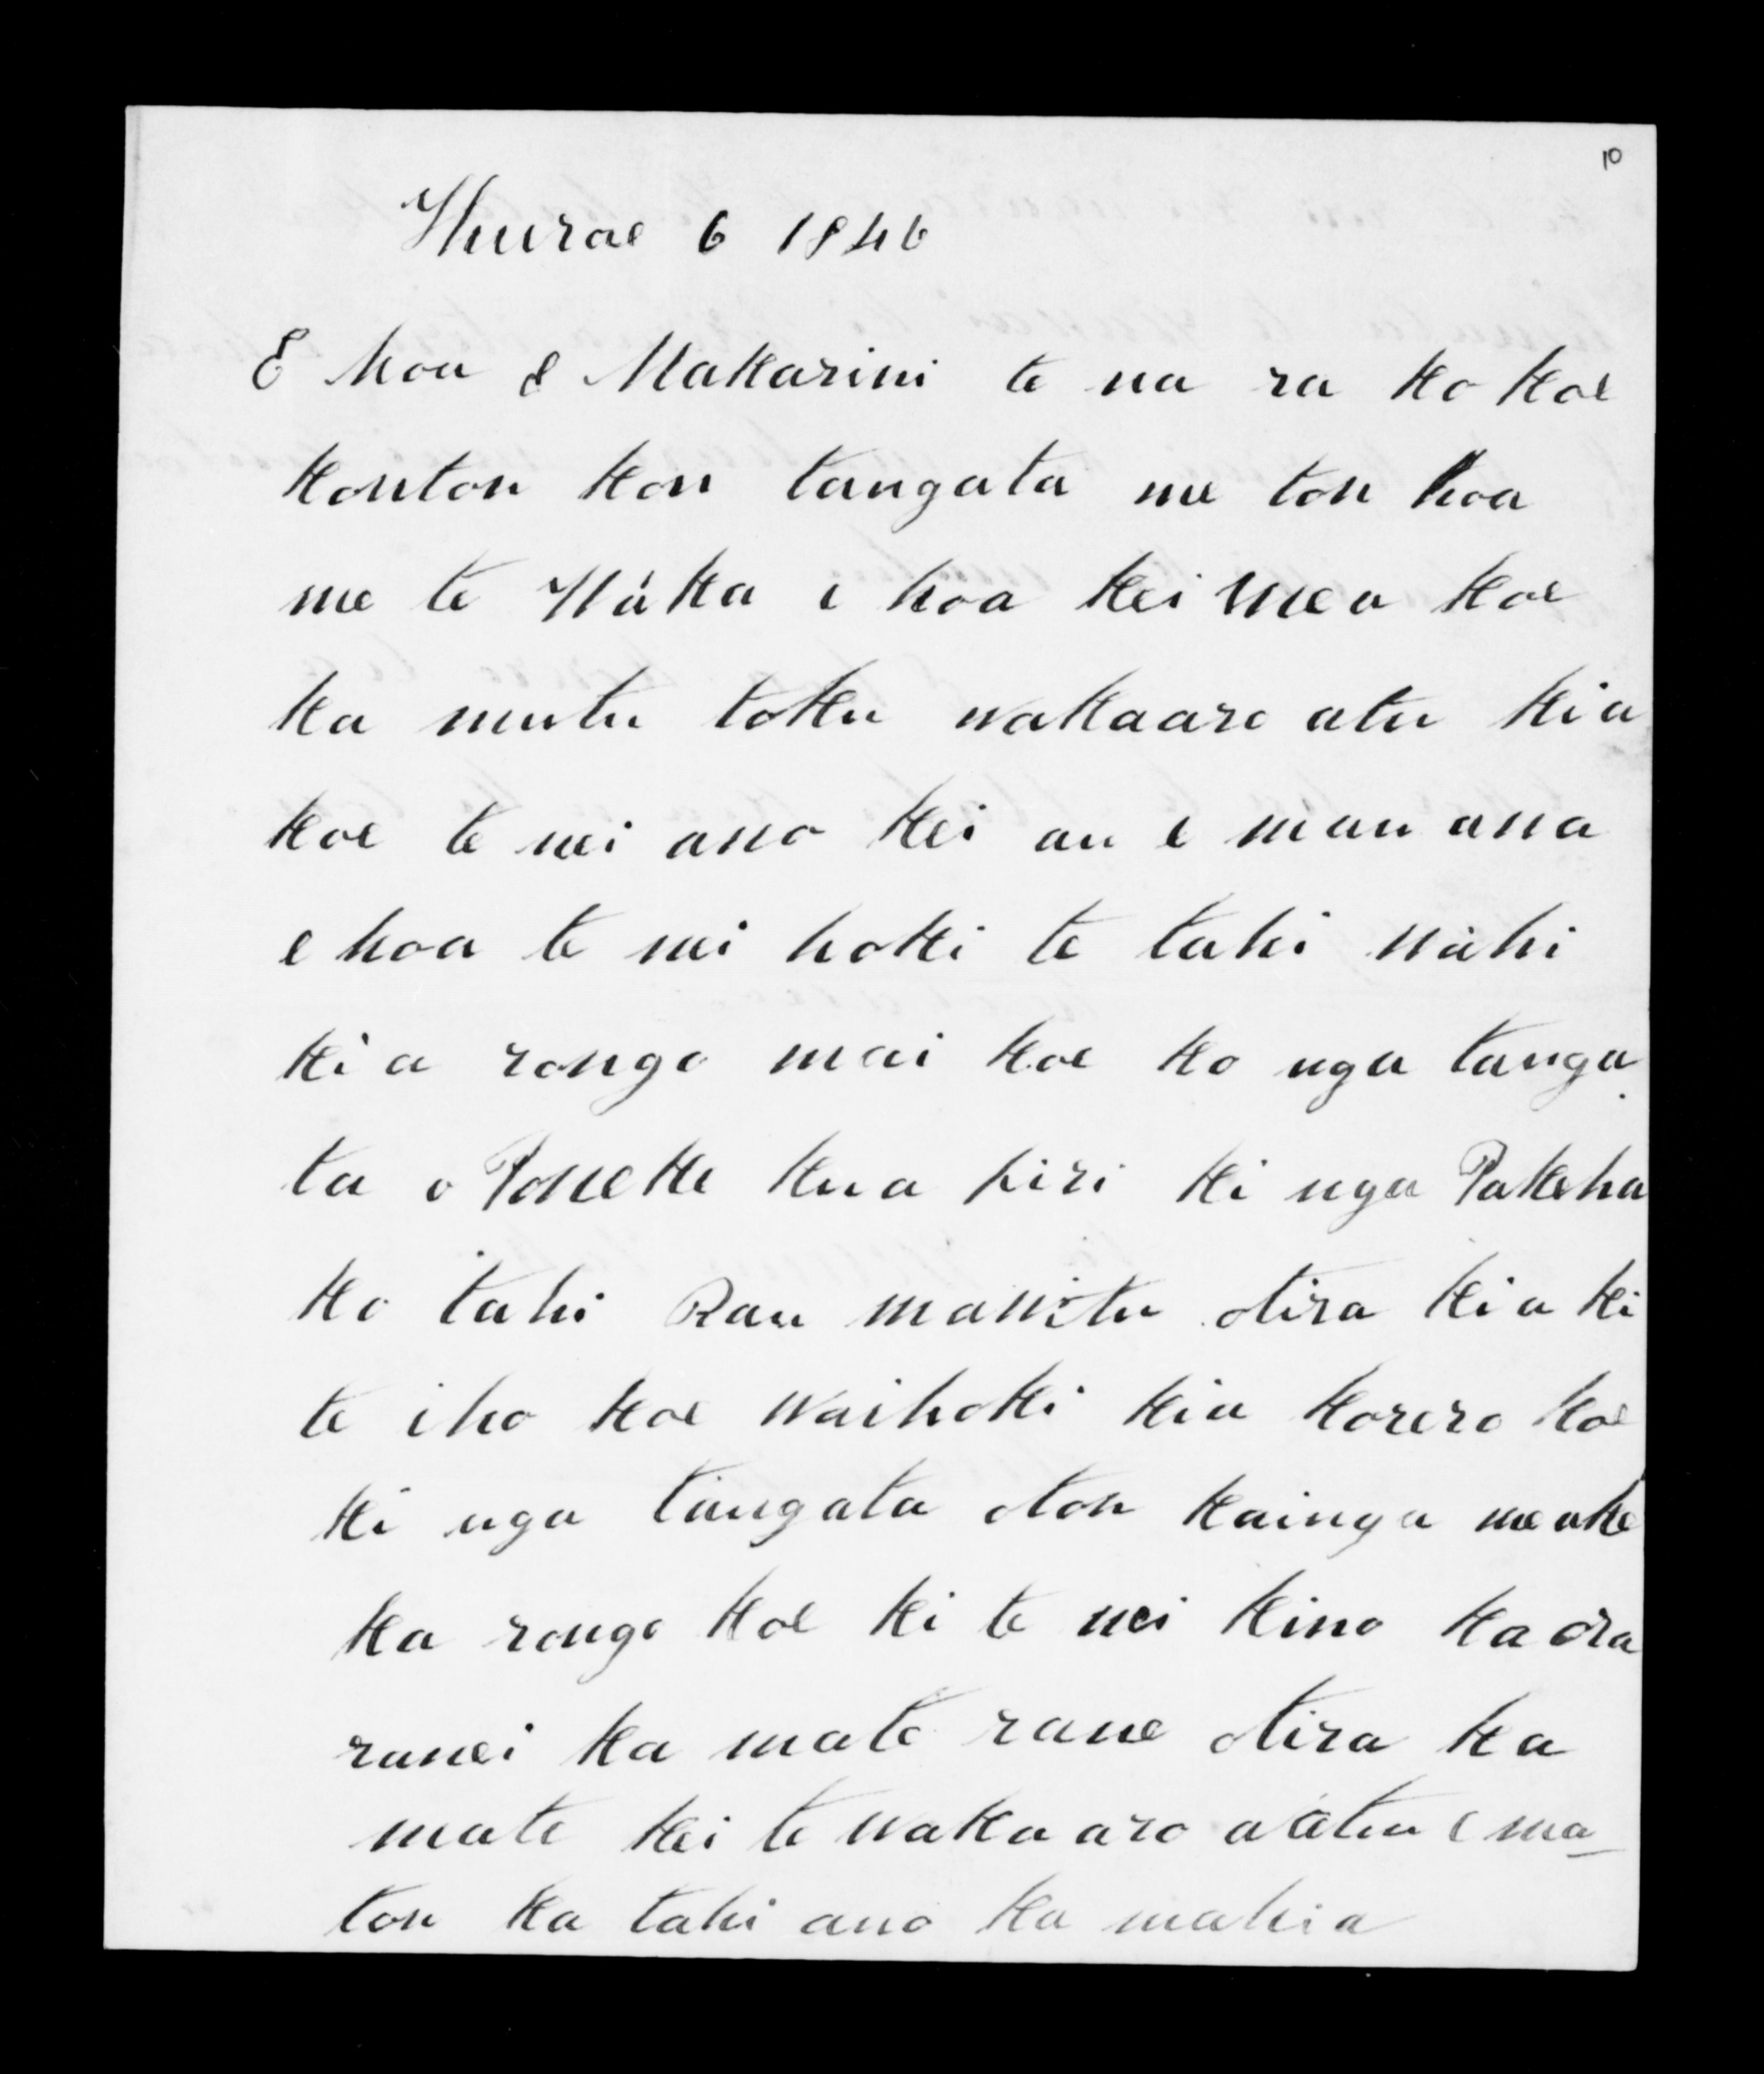 10
Hurae 6 1846
E hoa e Makarini te na ra ko koe
koutou kou tangata me tou hoa
me te Waka e hoa kei mea koe
ka mutu toku wakaaro atu kia
koe te nei ano kei au e mau ana
e hoa te nei hoki te tahi wahi
kia rongo mai koe ko nga tanga
ta o Poneke kua piri ki nga Pakeha
ko tahi Rau mawitu otira kia ki
te iho koe waihoki kia korero koe
ki nga tangata otou kainga meake
ka rongo koe ki te nei kino ka ora
ranei ka mate rane otira ka
mate kei te wakaaro atu e ma
tou ka tahi ano ka mahia